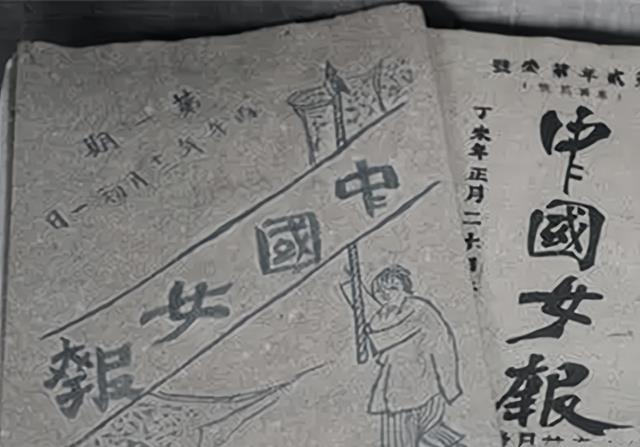 第一期
丙午年十二月初一日
中國女報
貳年第叁號
丁未年正月二十日
中國女報